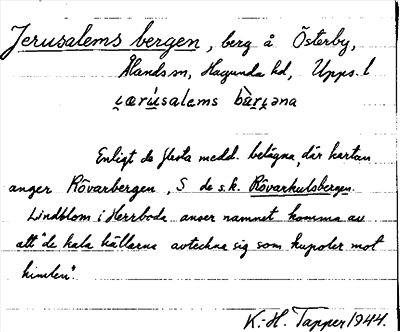 Jerusalems bergen, berg å Österby,
Ålands sn, Hagunda hd, Upps. l
i̯ærúsalems bàri̯əna
Enligt de flesta medd. belägna där kartan
anger Rövarbergen, S de s.k. Rövarkulsbergen.
Lindblom i Herrboda anser namnet komma av
att "de kala hällarna avteckna sig som kupoler mot
himlen".
K.-H. Tapper 1944.